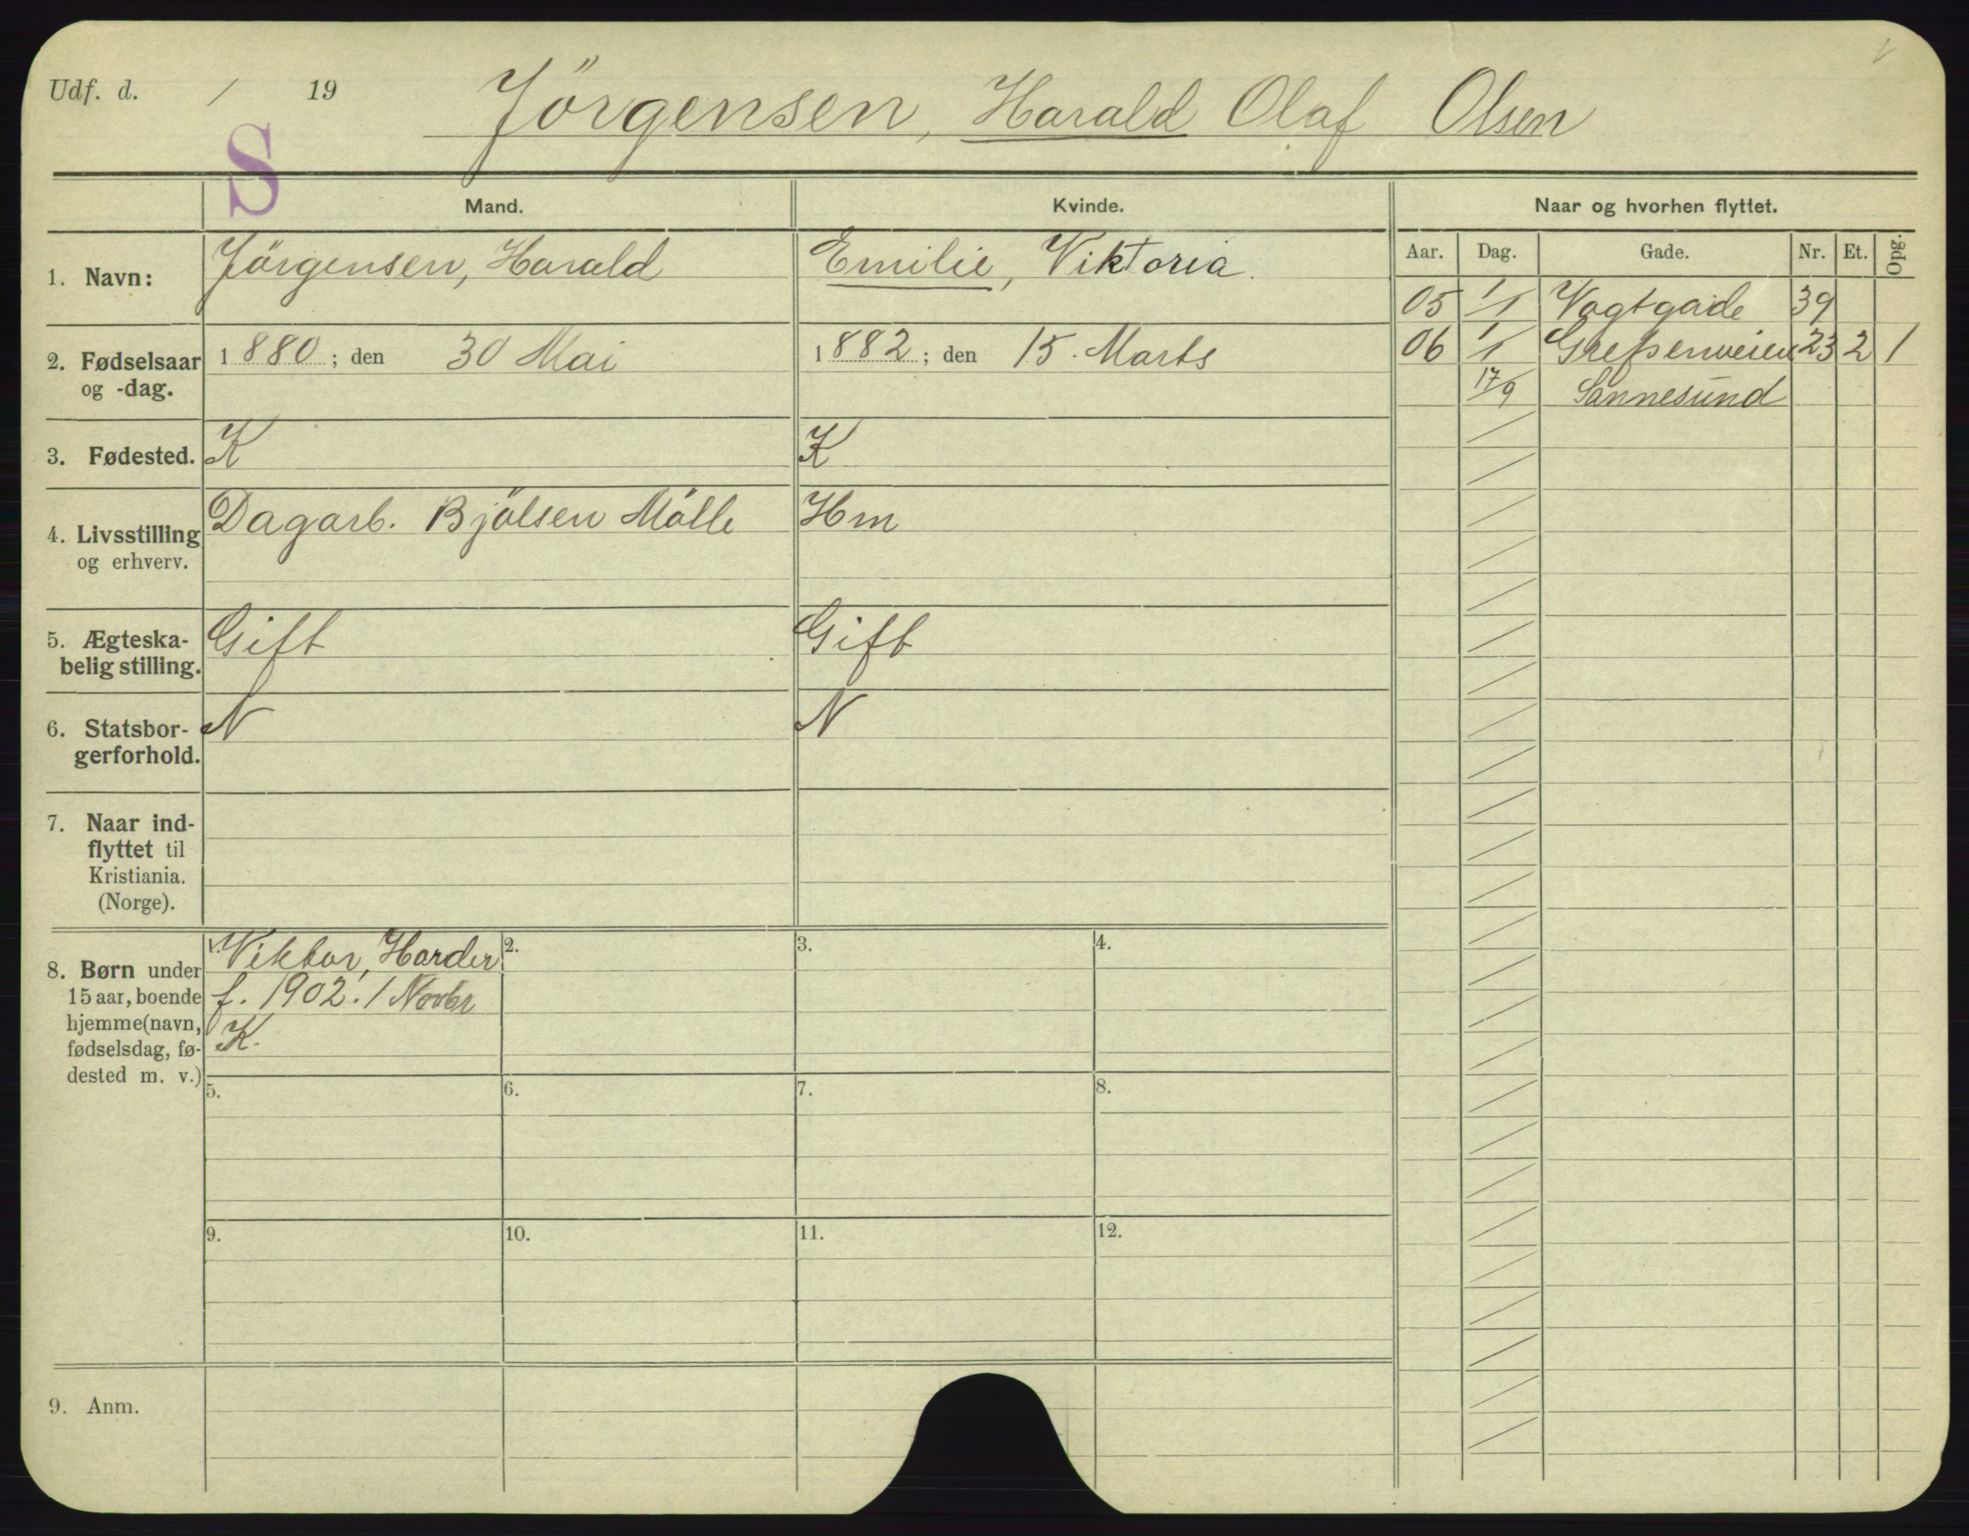 Udf. d. / 19 Jörgensen, Harald Olaf Olsen
S
Mand. Kvinde. Naar og hvorhen flyttet.
Aar. Dag. Gade. Nr. Et. Opg.
1. Navn: Jörgensen, Harald Emilie, Viktoria.
05 1/1 Vogtgade 39
2. Fødselsaar og -dag. 1880; den 30 Mai 1882; den 15. Marts
06 1/1 Grefsenveien 23 2 1
17/9 Sannesund
3. Fødested. K K
4. Livsstilling og erhverv. Dagarb. Bjölsen Mölle Hm
5. Ægteska-
belig stilling. Gift Gift
6. Statsbor-
gerforhold. N N
7. Naar ind-
flyttet til
Kristiania.
(Norge).
8. Børn under
15 aar, boende
hjemme (navn,
fødselsdag, fø-
dested m. v.)
1. Viktor, Harder 2. 3. 4.
f. 1902. 1 Novbr
K.
5. 6. 7. 8.
9. 10. 11. 12.
9. Anm.